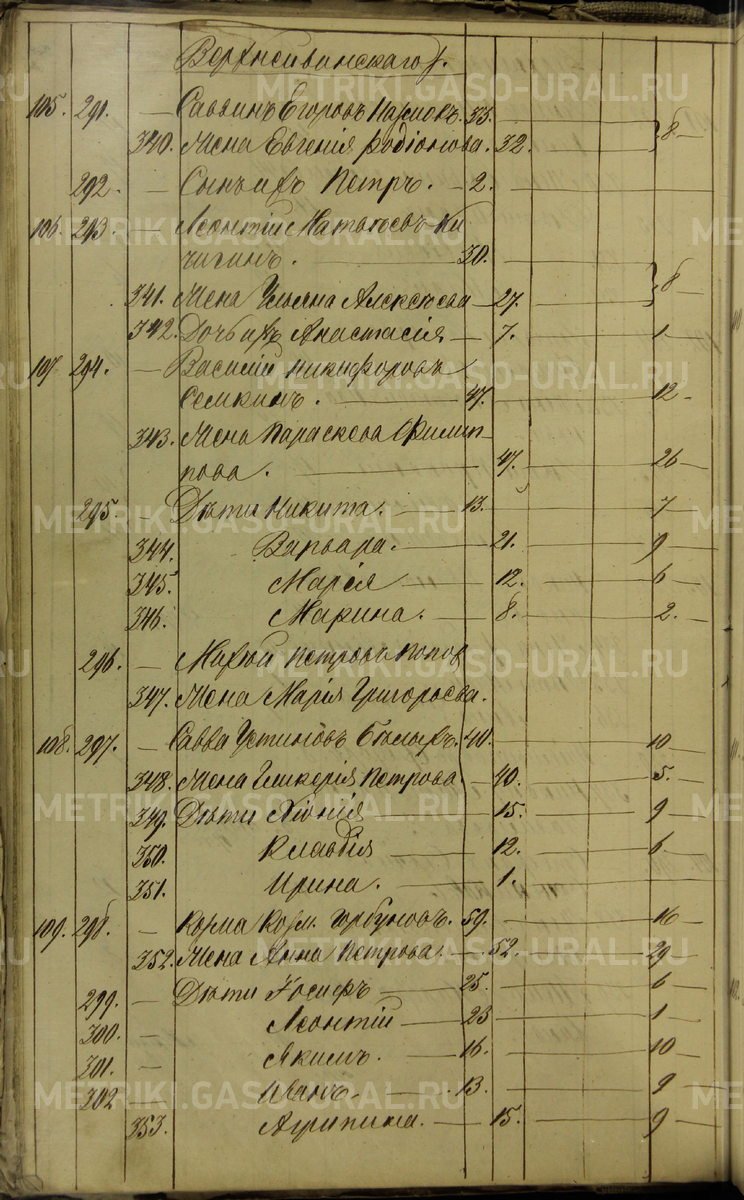 Верхнейвинскаго
105. 291. — Саввинъ Егоровъ 33.
340. Жена Евгенія Родіонова. 32. — 8
292. — Сынъ ихъ Петръ. — 2.
106. 293. — Леонтій Матвѣевъ Ки
чигинъ. — 30.
341. Жена Ульяна Алексѣева — 27. — 8
342. Дочь ихъ Анастасія — 7. — 1
107 294. — Василій Никифоровъ
Семкинъ. — 47. — 12
343. Жена Параскева Филип-
пова. — 47. — 26
295. — Дѣти Никита. — 13. — 7
344. Варвара. — 21. — 9
345. Марія — 12. — 6
346. Марина. — 8. — 2.
296. — Петровъ Попов
347. Жена Марія Григорьева.
108. 297. — Савва Устиновъ 40. — 10
348. Жена Гликерія Петрова — 40. — 5.
349. Дѣти Хіонія — 15. — 9
350. Клавдія — 12. — 6
351. Ирина. — 1.
109. 298. — Козма Козм. Горбуновъ. 59. — 16
352. Жена Анна Петрова. — 52. — 29
299. — Дѣти Іосифъ — 25. — 6
300. — Леонтій — 23 — 1
301. — Якимъ. — 16. — 10
302 — Иванъ. — 13. — 9
353. Агрипина. — 15. — 9
METRIKI.GASO-URAL.RU